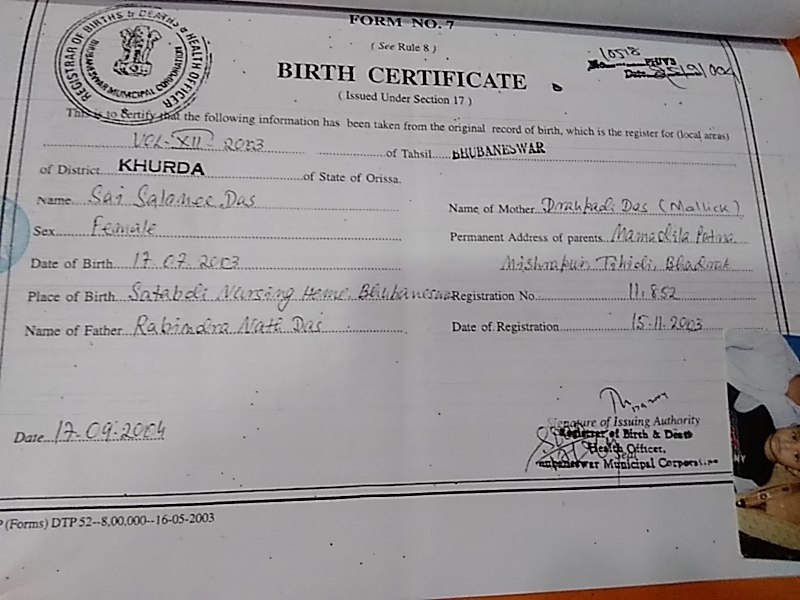 FORM NO. 7
( See Rule 8 )
REGISTRAR OF BIRTHS & DEATHS & HEALTH OFFICER
BHUBANESWAR MUNICIPAL CORPORATION
10518
No. PHUVS
Date
BIRTH CERTIFICATE
( Issued Under Section 17 )
This is to certify that the following information has been taken from the original record of birth, which is the register for (local areas)
VOL-XII 2003 of Tahsil BHUBANESWAR
of District KHURDA of State of Orissa.
Name Sai Salonee Das
Name of Mother Draupadi Das (Mallick)
Sex Female
Permanent Address of parents Mamadila Patna
Date of Birth 17.07.2003
Mishrapur Tihidi, Bhadrak
Place of Birth Satabdi Nursing Home, Bhubaneswar
Registration No. 11,852
Name of Father Rabindra Nath Das
Date of Registration 15.11.2003
Date 17.09.2004
Signature of Issuing Authority
Registrar of Birth & Death
Seal
Health Officer,
Bhubaneswar Municipal Corporation
P (Forms) DTP 52--8,00,000--16-05-2003